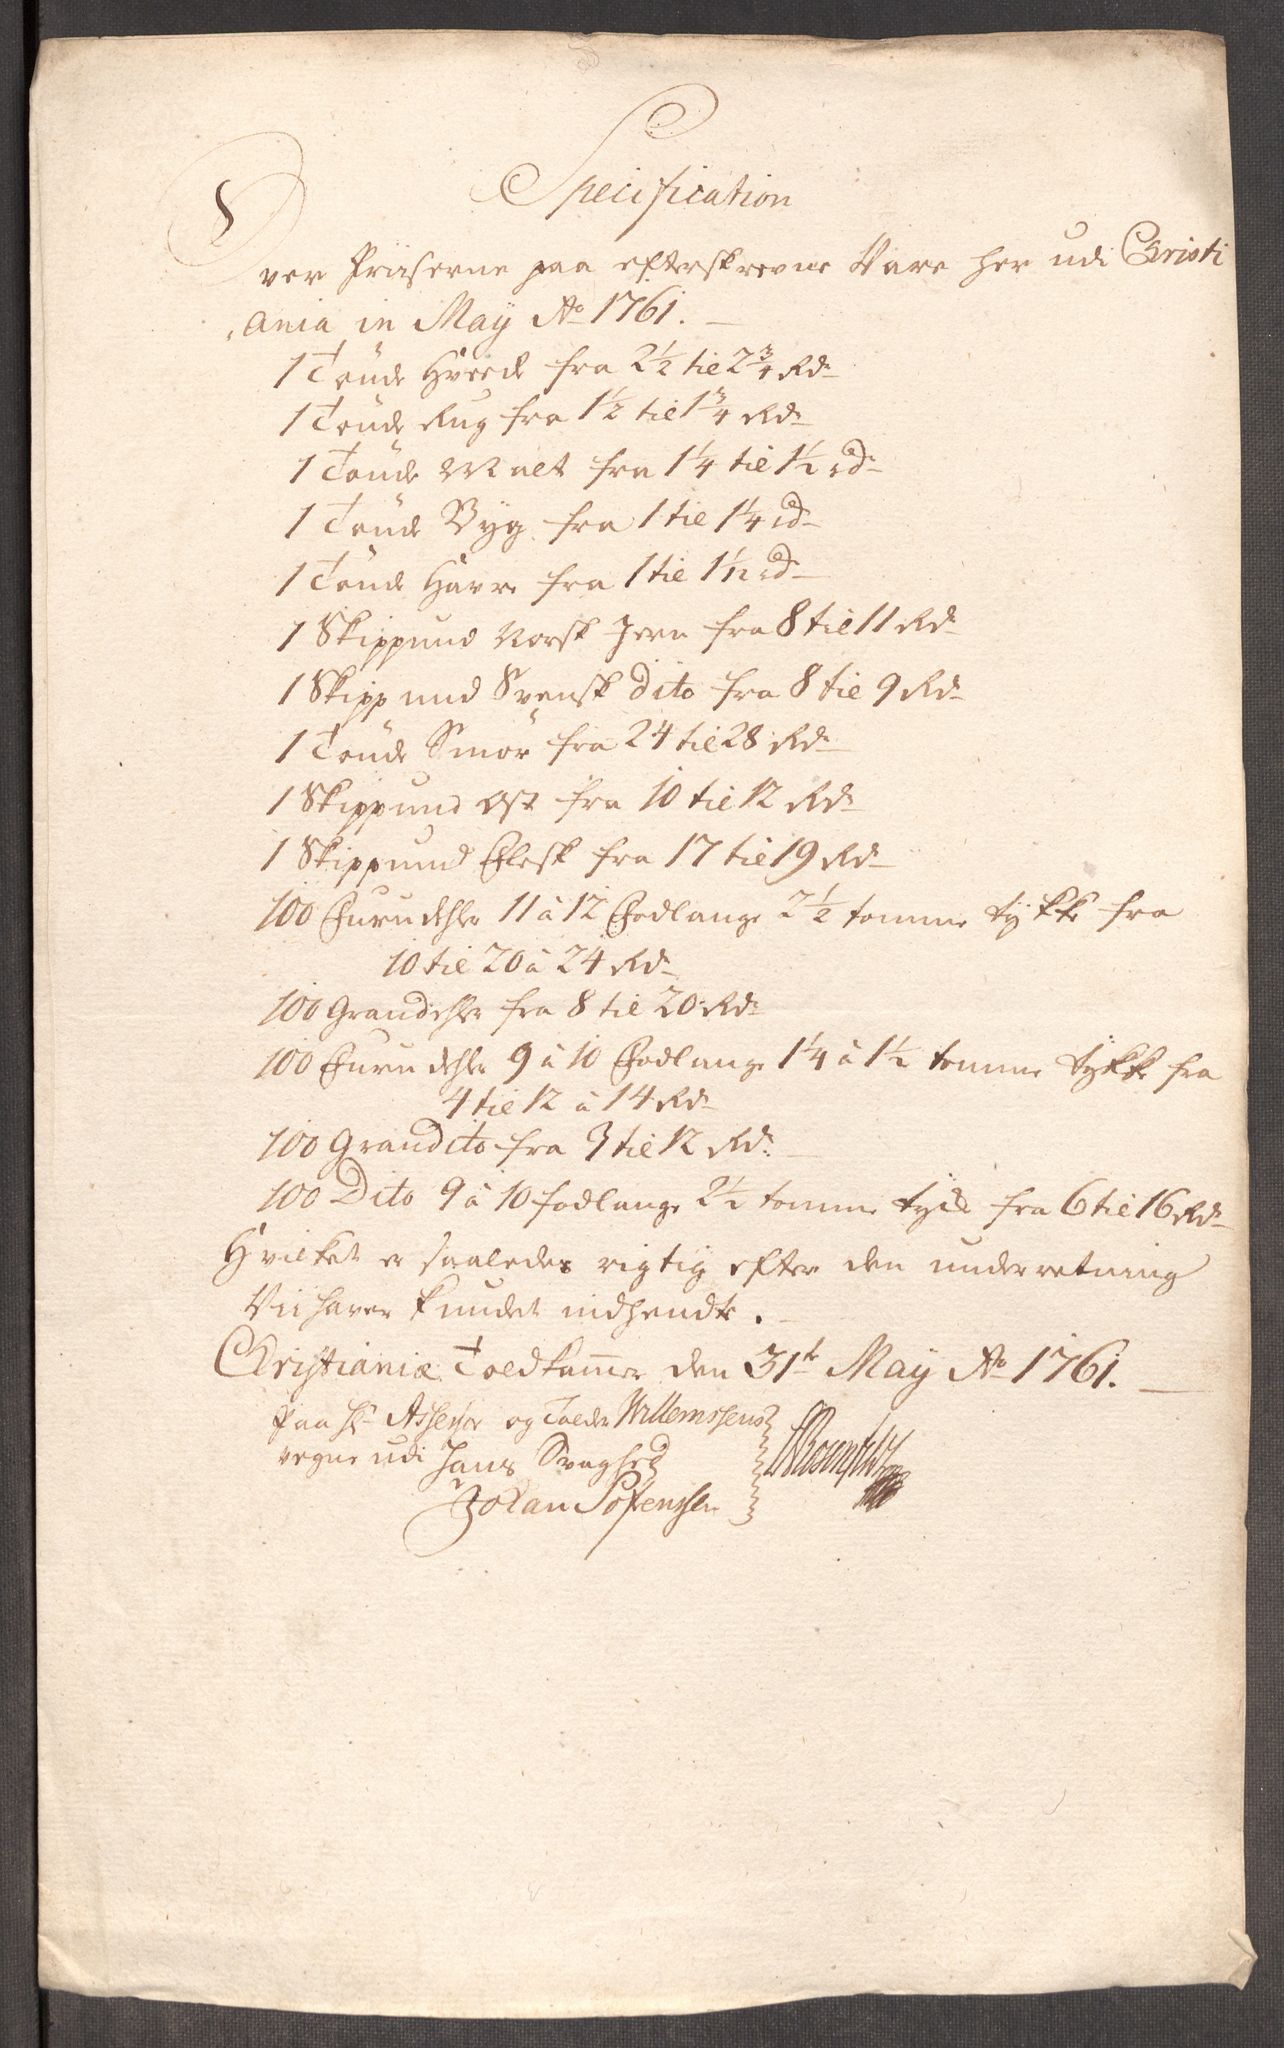 Specification
Over Priiserne paa efterskrevne Vare her udi Christi
ania in Maÿ Ao 1761.
1 Tönde Hveede fra 2½ til 2¾ Rdr
1 Tönde Rug fra 1½ til 1¾ Rdr
1 Tönde Malt fra 1¼ til 1½ rdr
1 Tönde Byg fra 1 til 1¼ rd
1 Tönde Havre fra 1 til 1½ rd
1 Skippund Norsk Jern fra 8 til 11 Rdr
1 Skippund Svensk dito fra 8 til 9 Rd
1 Tönde Smör fra 24 til 28 Rdr
1 Skippund Ost fra 10 til 12 Rdr
1 Skippund Flesk fra 17 til 19 Rd
100 Furudehler 11 á 12 Fodlange 2½ tomme tykke fra
10 til 20 á 24 Rdr
100 Grandehler fra 8 til 20 Rdr
100 Furudehler 9 á 10 Fodlange 1¼ á 1½ tomme tykke fra
4 til 12 á 14 Rdr
100 Grandito fra 3 til 12 Rdr.
100 Dito 9 á 10 fodlange 2½ tomme tyke fra 6 til 16 Rdr
Hvilket er saaledes rigtig efter den underretning
Vii haver kundet indhendte.
Christianiæ Toldkammer den 31te Maÿ Ao 1761.
Paa Hr Assessor og Tolder Willemssens
vegne udi Hans Svaghed
Johan Sörenssen